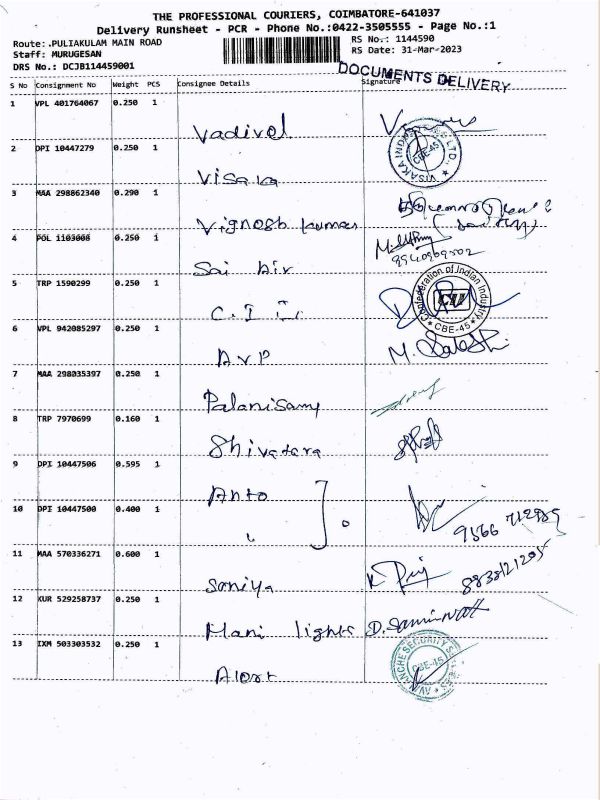 THE PROFESSIONAL COURIERS, COIMBATORE-641037
Delivery Runsheet - PCR - Phone No.:0422-3505555 - Page No.:1
Route:.PULIAKULAM MAIN ROAD
RS No.: 1144590
Staff: MURUGESAN
RS Date: 31-Mar-2023
DRS No.: DCJB114459001
DOCUMENTS DELIVERY
S No Consignment No Weight PCS Consignee Details Signature
1 VPL 401764067 0.250 1
Vadivel
2 DPI 10447279 0.250 1
VISAKA INDUSTRIES LTD., CBE-45
Visaka
3 MAA 298862340 0.290 1
Vignesh kumar
4 POL 1103008 0.250 1
9940969502
Sai Air
5 TRP 1590299 0.250 1
Confederation of Indian Industry CII CBE-45
C.I.I.
6 VPL 942085297 0.250 1
AVP
7 MAA 298035397 0.250 1
Palanisamy
8 TRP 7970699 0.160 1
Shivatara
9 DPI 10447506 0.595 1
Anto
10 DPI 10447500 0.400 1
9566 712985
11 MAA 570336271 0.600 1
Soniya
12 KUR 529258737 0.250 1
Mani lights D. Saminnath
13 IXM 503303532 0.250 1
CBE-45
Alert